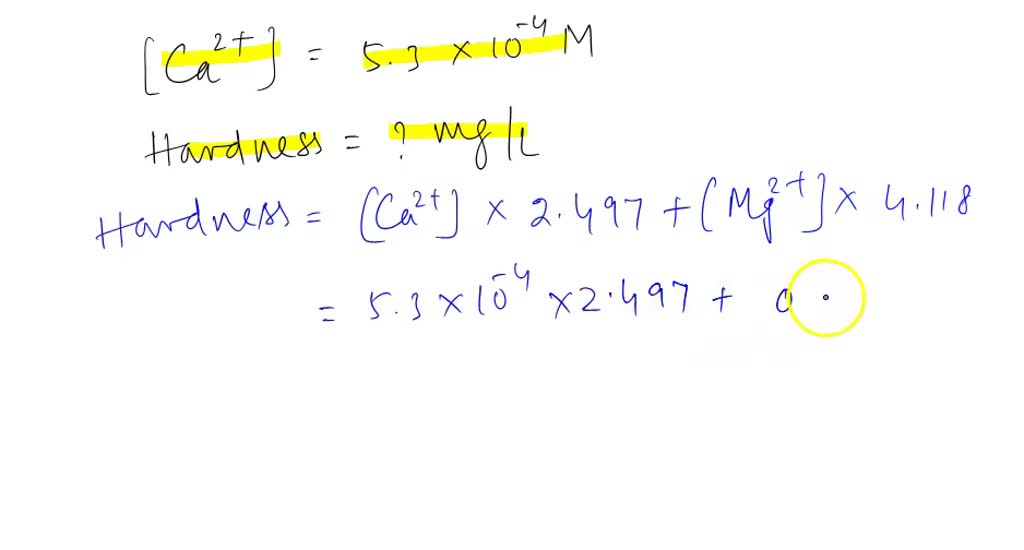 [Ca²⁺] = 5.3 × 10⁻⁴ M
Hardness = ? mg/L
Hardness = [Ca²⁺] × 2.497 + [Mg²⁺] × 4.118
= 5.3 × 10⁻⁴ × 2.497 + 0